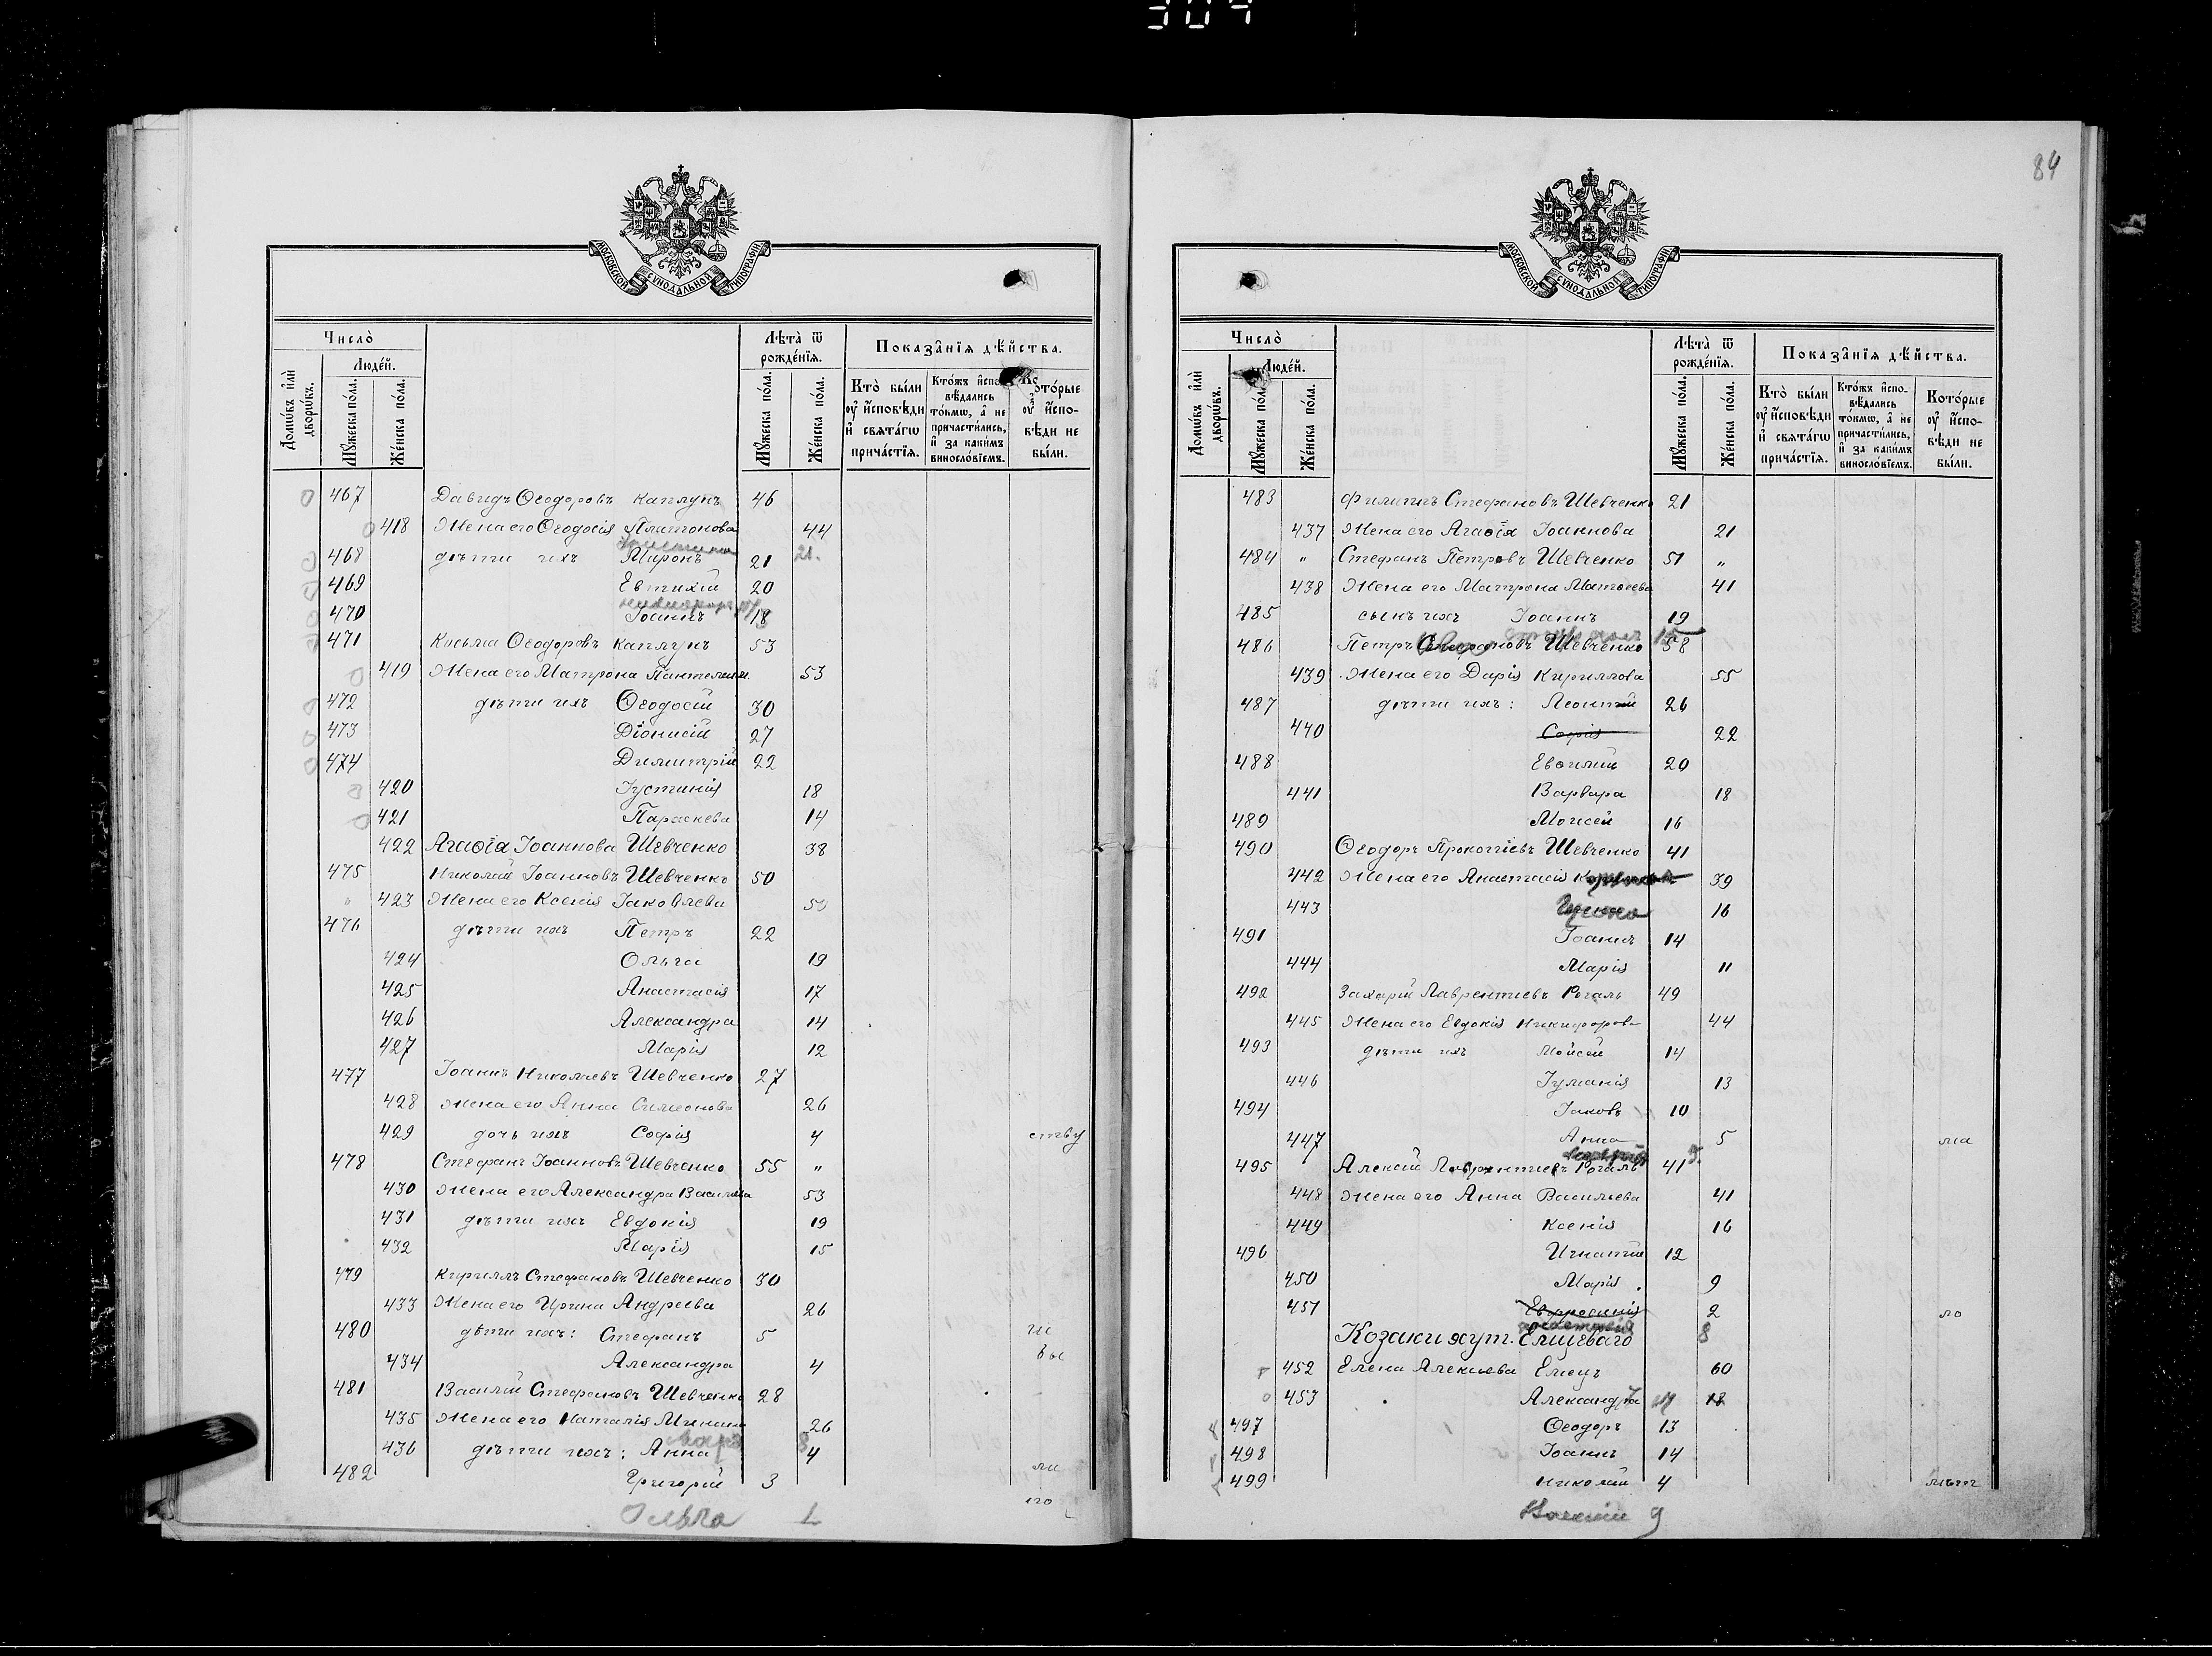 307
84
МОСКОВСКОЙ СУНОДАЛЬНОЙ ТИПОГРАФІИ
Число̀
Люде́й.
Домѡ́въ и҆лѝ дворѡ́въ.
Мꙋ́жеска по́ла.
Же́нска по́ла.
Лѣ́та ѿ рожде́нїѧ.
Мꙋ́жеска по́ла.
Же́нска по́ла.
Показа̑нїѧ дѣ́йства.
Кто̀ бы́ли ᲂу҆ и҆́сповѣди и҆ свѧта́гѡ прича́стїѧ.
Кто́жъ и҆спо­вѣ́дались то́кмѡ, а҆ не причасти́лись, и҆ за каки́мъ винослові́емъ.
Кото́рые ᲂу҆ и҆́спо­вѣди не бы́ли.
467 Давидъ Ѳеодоровъ Каплунъ 46
418 Жена его Ѳеодосія Платонова 44
468 дѣти ихъ Миронъ 21 21.
469 Евтихій 20
470 Іоаннъ 18
471 Косьма Ѳеодоровъ Каплунъ 53
419 Жена его Матрона 53
472 дѣти ихъ Ѳеодосій 30
473 Діонисій 27
474 Димитрій 22
420 Іустинія 18
421 Параскева 14
422 Агаѳія Іоаннова Шевченко 38
475 Николай Іоанновъ Шевченко 50
423 Жена его Ксенія Іаковлева 50
476 дѣти ихъ Петръ 22
424 Ольга 19
425 Анастасія 17
426 Александра 14
427 Марія 12
477 Іоаннъ Николаевъ Шевченко 27
428 Жена его Анна Симеонова 26
429 дочь ихъ Софія 4 ству
478 Стефанъ Іоанновъ Шевченко 55 "
430 Жена его Александра Васильева 53
431 дѣти ихъ Евдокія 19
432 Марія 15
479 Кириллъ Стефановъ Шевченко 30
433 Жена его Ирина Андреева 26
480 дѣти ихъ: Стефанъ 5
434 Александра 4
481 Василій Стефановъ Шевченко 28
435 Жена его Наталія 26
436 дѣти ихъ: Анна 4
482 Григорій 3
Ольга 1
Число̀
Люде́й.
Домѡ́въ и҆лѝ дворѡ́въ.
Мꙋ́жеска по́ла.
Же́нска по́ла.
Лѣ́та ѿ рожде́нїѧ.
Мꙋ́жеска по́ла.
Же́нска по́ла.
Показа̑нїѧ дѣ́йства.
Кто̀ бы́ли ᲂу҆ и҆́сповѣди и҆ свѧта́гѡ прича́стїѧ.
Кто́жъ и҆спо­вѣ́дались то́кмѡ, а҆ не причасти́лись, и҆ за каки́мъ винослові́емъ.
Кото́рые ᲂу҆ и҆́спо­вѣди не бы́ли.
МОСКОВСКОЙ СУНОДАЛЬНОЙ ТИПОГРАФІИ
483 Филиппъ Стефановъ Шевченко 21
437 Жена его Агаѳія Іоаннова 21
484 " Стефанъ Петровъ Шевченко 51 "
438 Жена его Матрона Матѳеева 41
485 сынъ ихъ Іоаннъ 19
486 Петръ Шевченко 58
439 Жена его Дарія Кириллова 55
487 дѣти ихъ: Леонтій 26
440 Софія 22
488 Евѳимій 20
441 Варвара 18
489 Моисей 16
490 Ѳеодоръ Прокопіевъ Шевченко 41
442 Жена его Анастасія 39
443 16
491 Іоаннъ 14
444 Марія 11
492 Захарій Лаврентіевъ Рогаль 49
445 Жена его Евдокія Никифорова 44
493 дѣти ихъ Моисей 14
446 Іуліанія 13
494 Іаковъ 10
447 Анна 5 ла
495 Алексій Лаврентіевъ Рогаль 41
448 Жена его Анна Васильева 41
449 Ксенія 16
496 Игнатій 12
450 Марія 9
451 Евфросинія 2 ло
Козаки хут. Емцеваго 8
452 Елена Алексіева Емецъ 60
453 Александра 18
497 Ѳеодоръ 13
498 Іоаннъ 14
499 Николай 4 лѣт
9